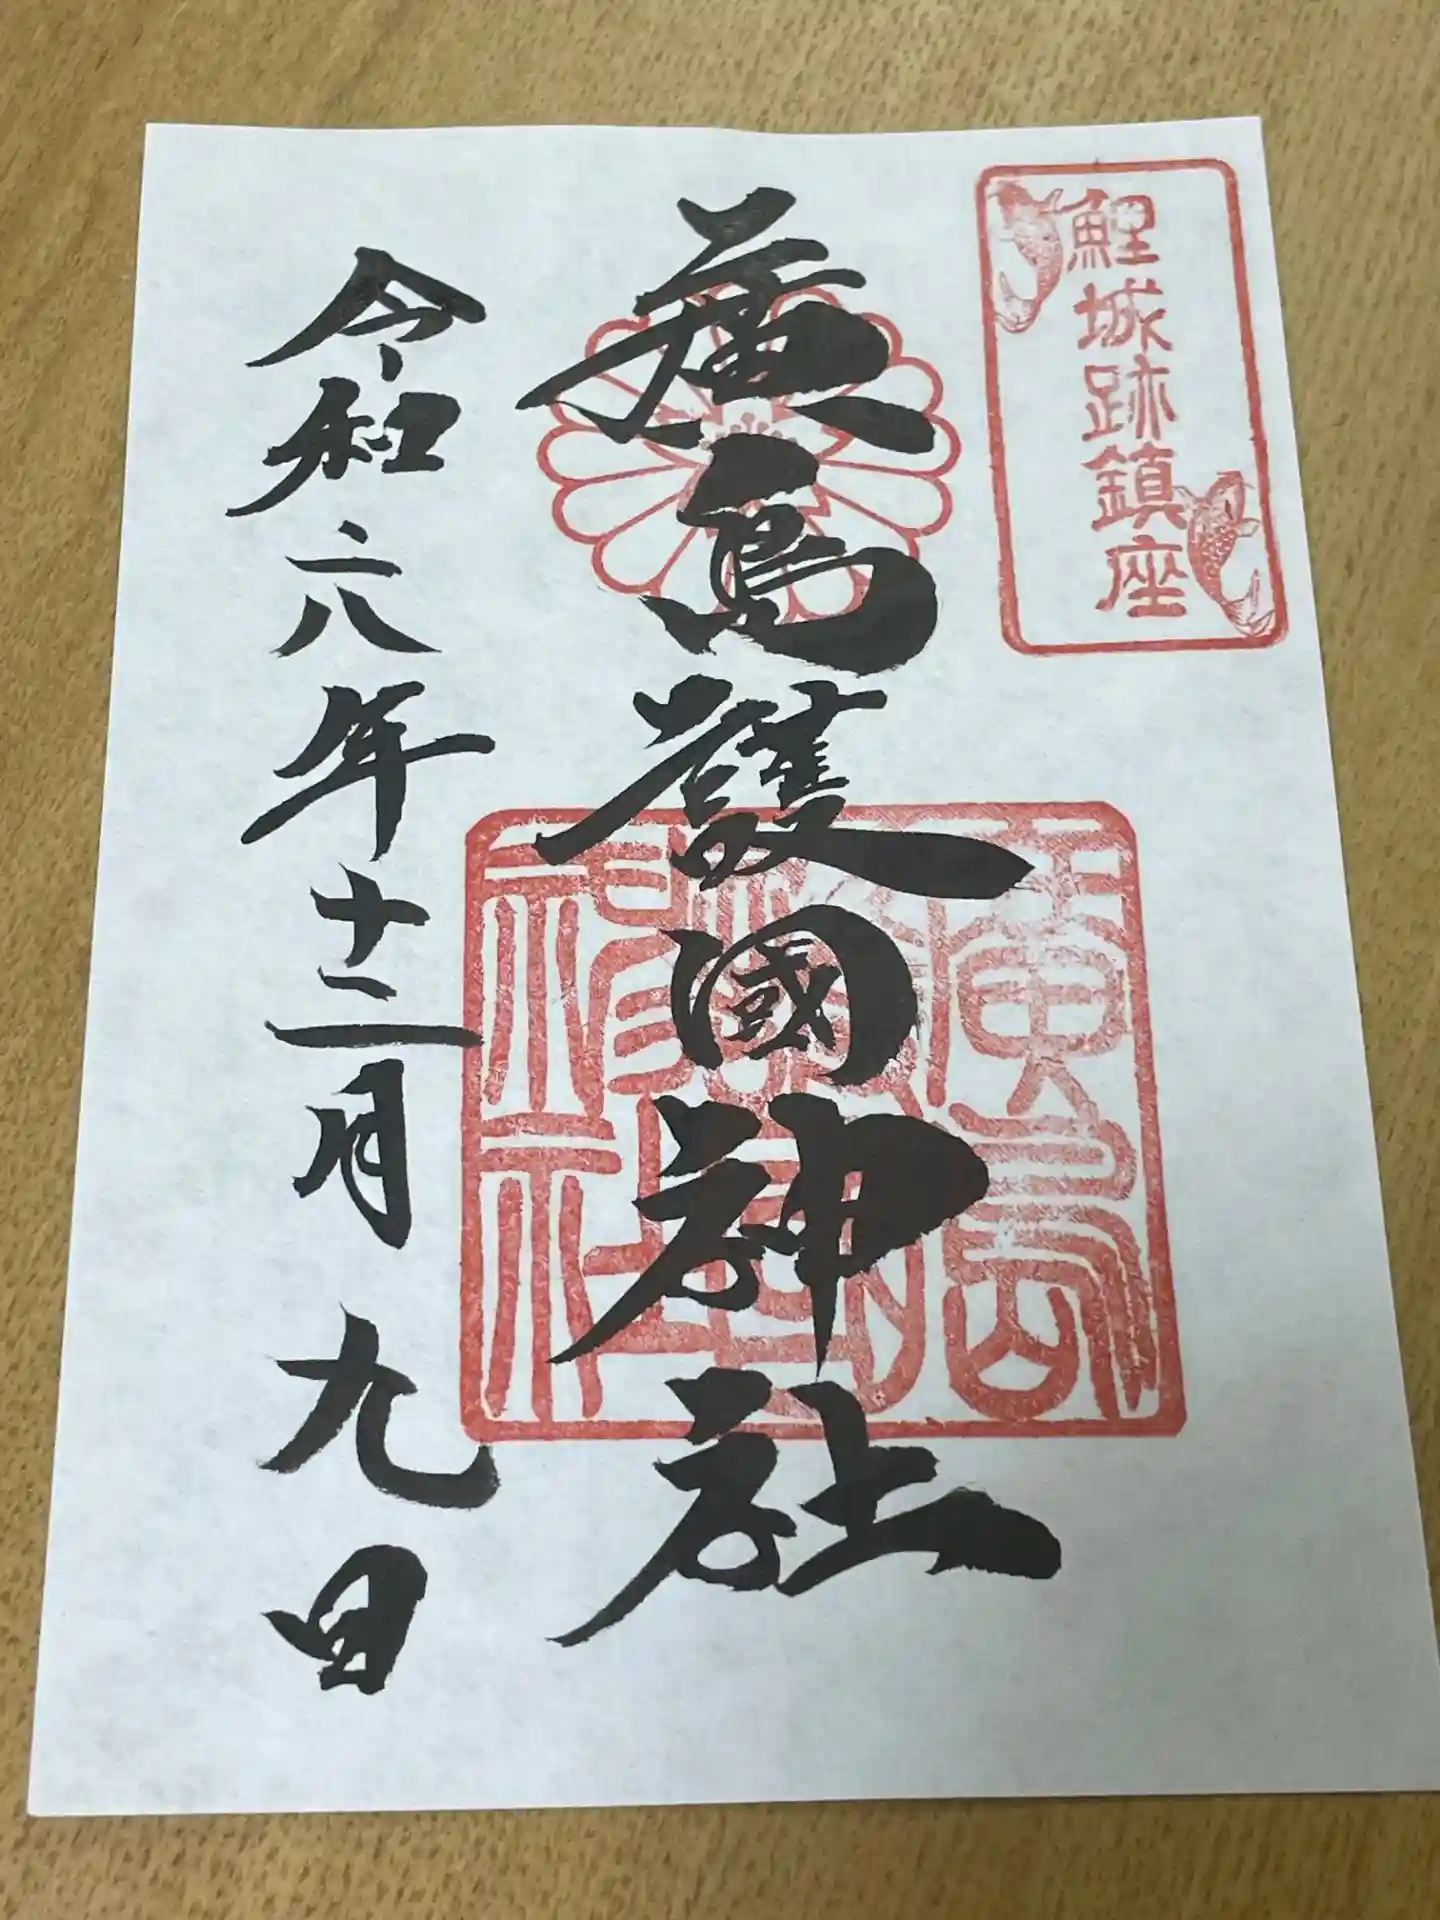 鯉城跡鎮座
廣島護國神社
廣島護國神社
令和六年十二月九日